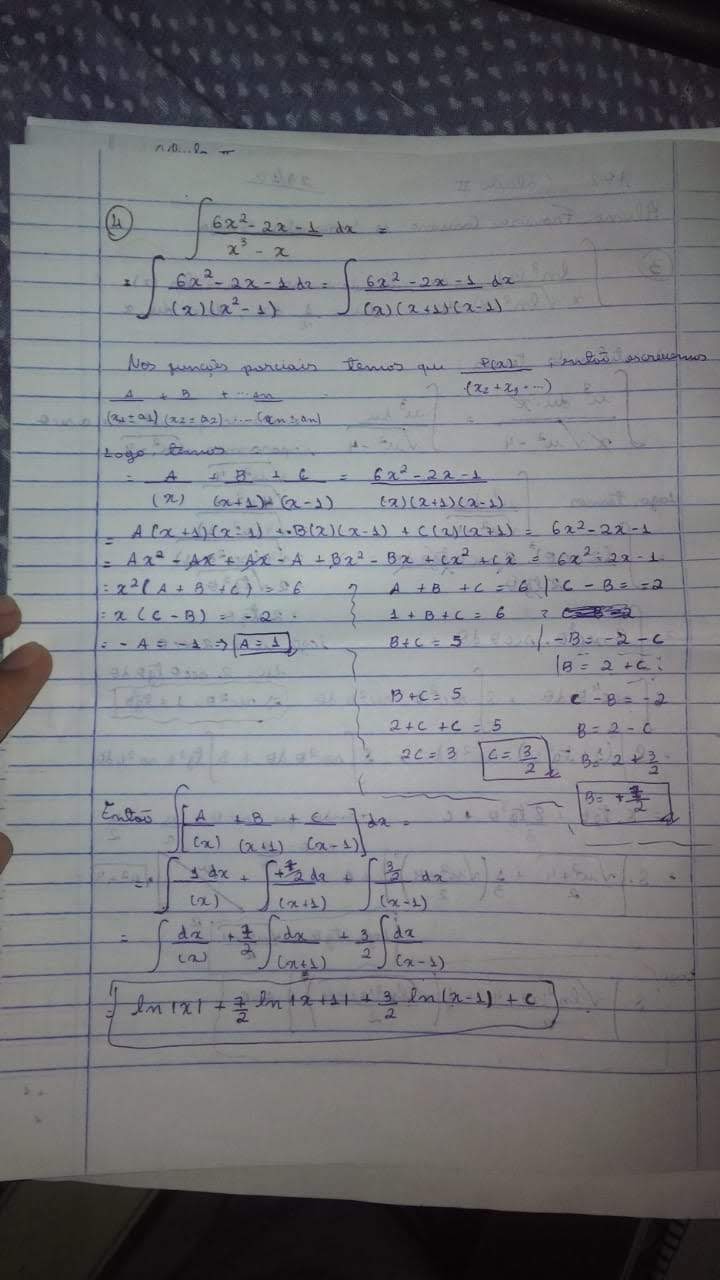 ④ ∫ 6x² - 2x - 1 / x³ - x dx =
= ∫ 6x² - 2x - 1 dx / (x)(x² - 1) = ∫ 6x² - 2x - 1 dx / (x)(x+1)(x-1)
Nas funções parciais temos que P(x) / (x₂ + x₃ ...) , então escrevemos
A / (x₁ = a₁) + B / (x₂ = a₂) + ... an / (xn = an)
Logo, temos
= A / (x) + B / (x+1) + C / (x-1) = 6x² - 2x - 1 / (x)(x+1)(x-1)
= A(x+1)(x-1) + B(x)(x-1) + C(x)(x+1) = 6x² - 2x - 1
= Ax² - Ax + Ax - A + Bx² - Bx + Cx² + Cx = 6x² - 2x - 1
: x² (A + B + C) = 6
: x (C - B) = -2
= - A = -1 → A = 1
A + B + C = 6
1 + B + C = 6
B + C = 5
C - B = -2
- B = -2 - C
B = 2 + C
B + C = 5
2 + C + C = 5
2C = 3 C = 3/2
C - B = -2
B = 2 - C
B = 2 + 3/2
B = + 7/2
Então ∫ [ A / (x) + B / (x+1) + C / (x-1) ] dx =
= ∫ 1 dx / (x) + ∫ +7/2 dx / (x+1) + ∫ 3/2 dx / (x-1)
= ∫ dx / (x) + 7/2 ∫ dx / (x+1) + 3/2 ∫ dx / (x-1)
= ln |x| + 7/2 ln |x+1| + 3/2 ln (x-1) + C